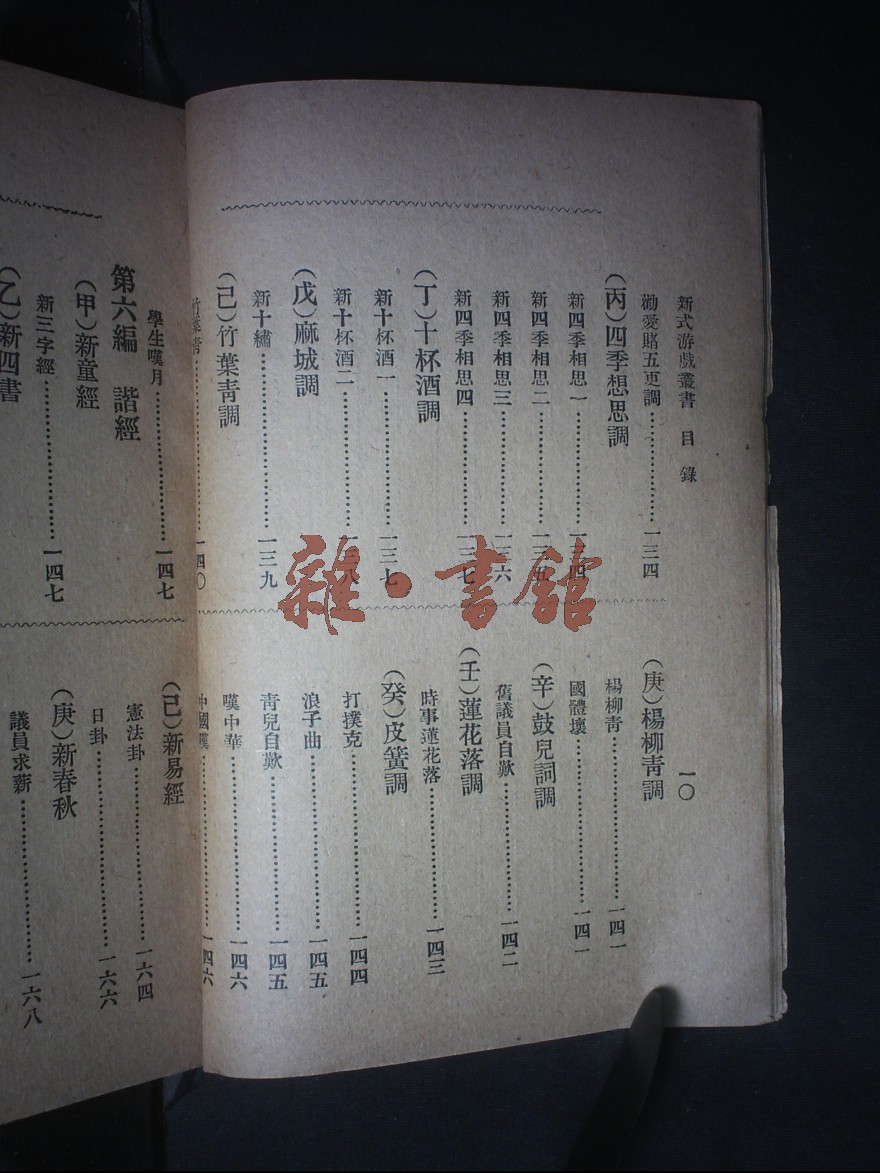 新式游戲叢書 目錄 一〇
勸愛賭五更調 一三四
(丙)四季想思調
新四季相思一
新四季相思二
新四季相思三 一三六
新四季相思四 一三七
(丁)十杯酒調
新十杯酒一 一三七
新十杯酒二 一三八
(戊)麻城調
新十繡 一三九
(己)竹葉青調
竹葉青 一四〇
(庚)楊柳青調
楊柳青 一四一
國體壞 一四一
(辛)鼓兒詞調
舊議員自歎 一四二
(壬)蓮花落調
時事蓮花落 一四三
(癸)皮簧調
打撲克 一四四
浪子曲 一四五
青兒自歎 一四五
嘆中華 一四六
中國嘆 一四六
學生嘆月 一四七
第六編 諧經
(甲)新童經
新三字經 一四七
(乙)新四書
(己)新易經
憲法卦 一六四
日卦 一六六
(庚)新春秋
議員求薪 一六八
雜·書館